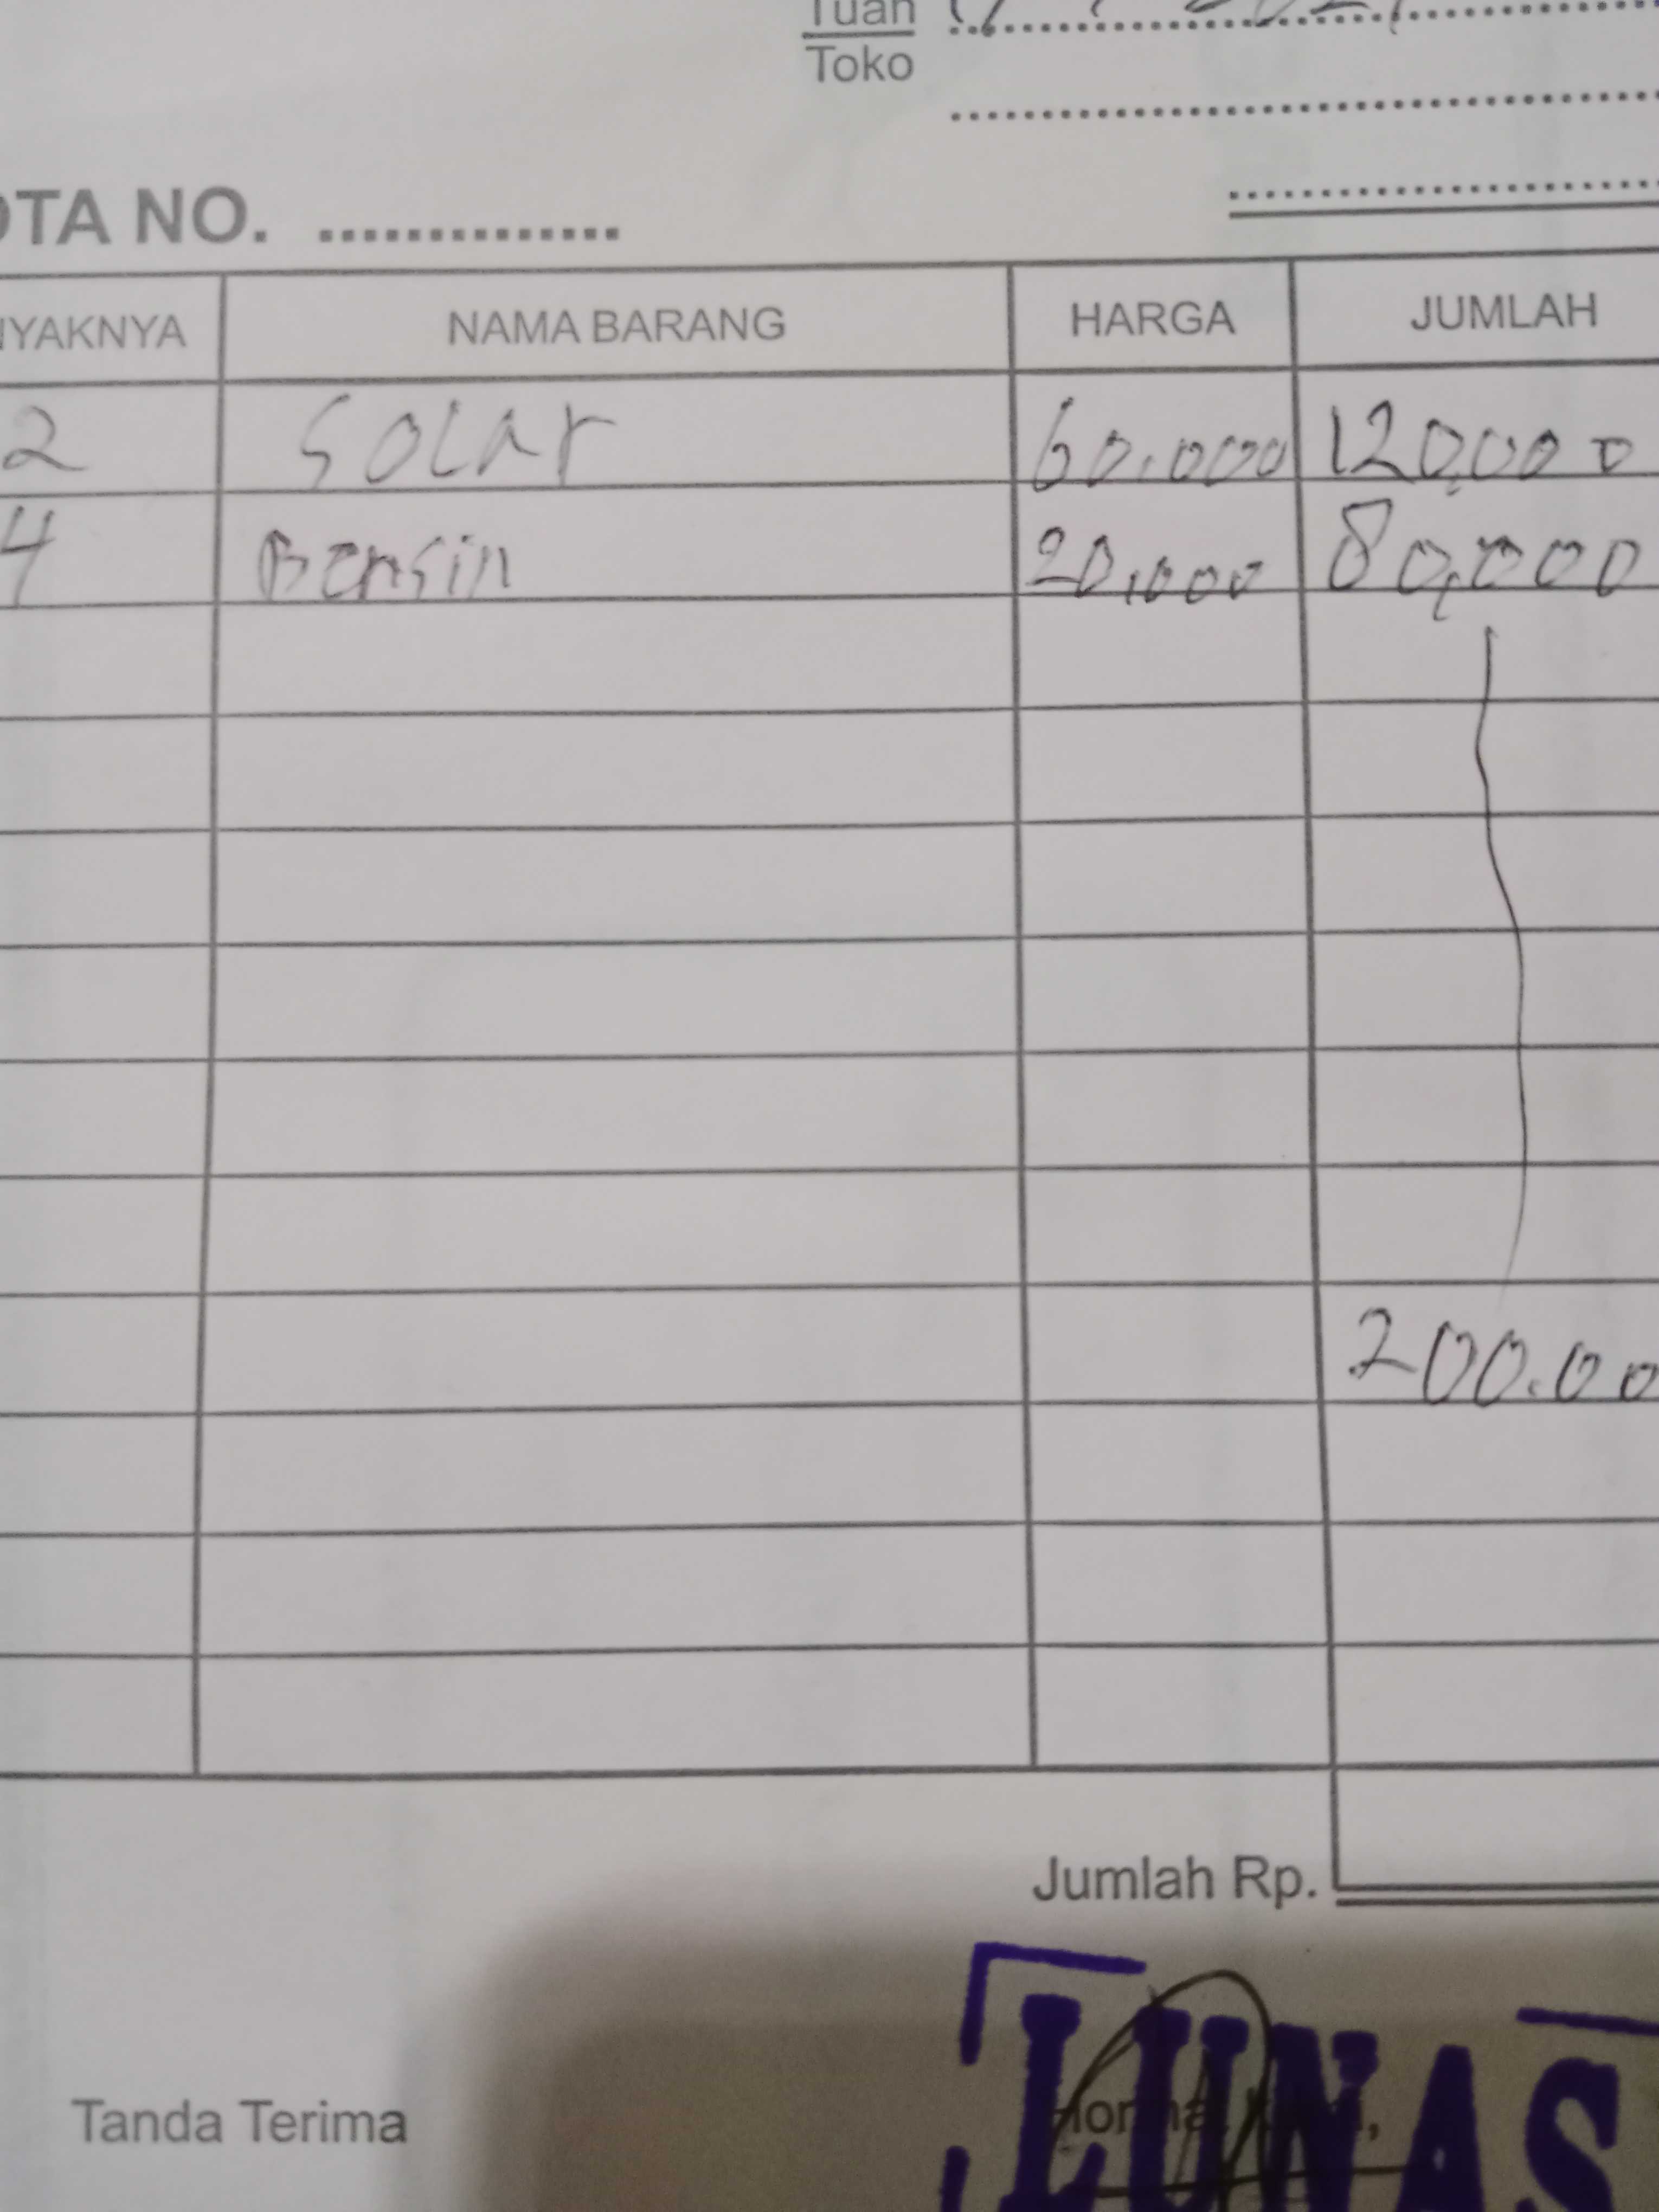 Tuan
Toko
OTA NO. ..............
NYAKNYA NAMA BARANG HARGA JUMLAH
2 Solar 60.000 120,000
4 Bensin 20,000 80,000
200.00
Jumlah Rp.
Tanda Terima
LUNAS